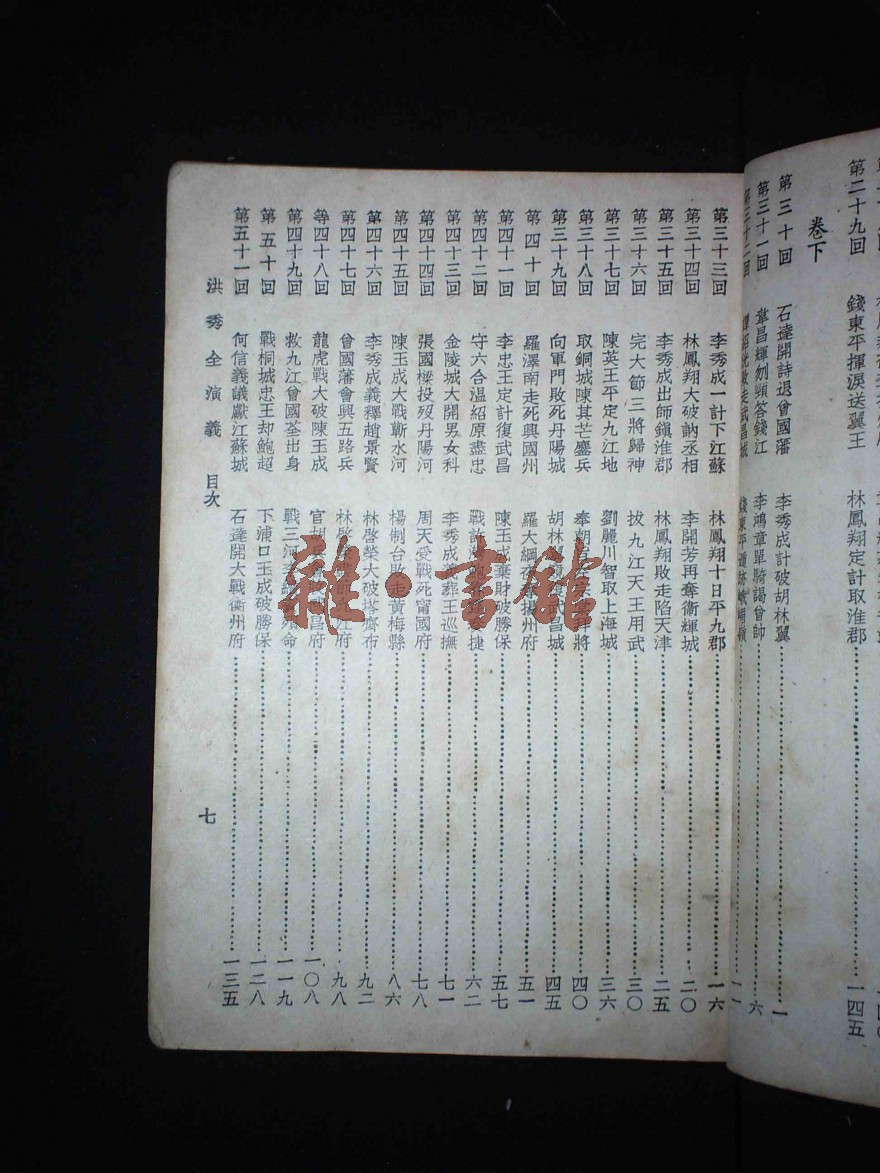 第二十九回 錢東平揮淚送翼王 林鳳翔定計取淮郡 一四五
卷下
第三十回 石達開詩退曾國藩 李秀成計破胡林翼 一
第三十一回 韋昌輝刎頸答錢江 李鴻章單騎謁曾帥 六
第三十二回 走武昌城 一一
第三十三回 李秀成一計下江蘇 林鳳翔十日平九郡 一六
第三十四回 林鳳翔大破訥丞相 李開芳再奪衞輝城 二〇
第三十五回 李秀成出師鎭淮郡 林鳳翔敗走陷天津 二五
第三十六回 完大節三將歸神 拔九江天王用武 三〇
第三十七回 陳英王平定九江地 劉麗川智取上海城 三六
第三十八回 取銅城陳其芒鏖兵 奉朝 將 四〇
第三十九回 向軍門敗死丹陽城 胡林翼 武昌城 四五
第四十回 羅澤南走死興國州 羅大綱 揚州府 五一
第四十一回 李忠王定計復武昌 陳玉成棄財破勝保 五七
第四十二回 守六合温紹原盡忠 戰 捷 六二
第四十三回 金陵城大開男女科 李秀成義葬王巡撫 七一
第四十四回 張國樑投歿丹陽河 周天爱戰死甯國府 七八
第四十五回 陳玉成大戰蘄水河 楊制台敗走黃梅縣 八六
第四十六回 李秀成義釋趙景賢 林啓榮大破塔齊布 九二
第四十七回 曾國藩會興五路兵 林啓 江府 九八
等四十八回 龍虎戰大破陳玉成 官胡 昌府 一〇八
第四十九回 救九江曾國荃出身 戰三河李 殞命 一一九
第五十回 戰桐城忠王却鮑超 下浦口玉成破勝保 一二八
第五十一回 何信義議獻江蘇城 石達開大戰衞州府 一三五
洪秀全演義 目次 七
雜·書館